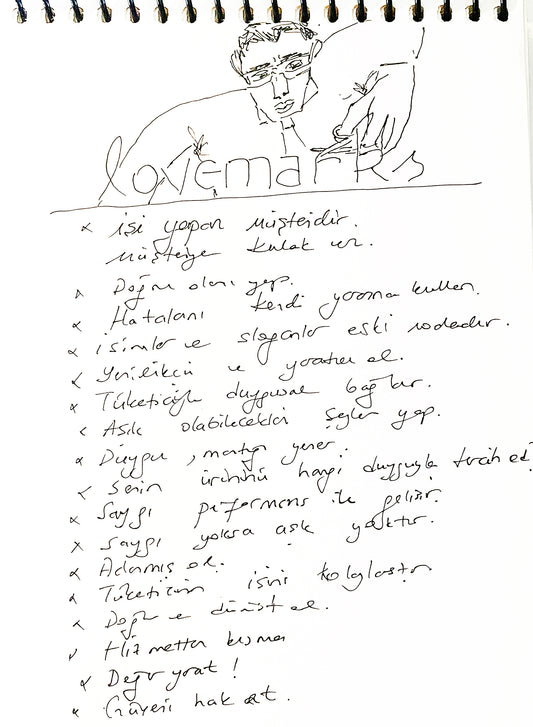 lovemarks
x işi yapan müşteridir.
müşteriye kulak ver.
x Doğru olanı yap.
x Hatalarını kendi yararına kullan.
x isimler ve sloganlar eski modadır.
x Yenilikçi ve yaratıcı ol.
x Tüketiciyle duygusal bağlar.
x Aşık olabilecekleri şeyler yap.
x Duygu, mantığı yener.
x Senin ürününü hangi duyguyla tercih ed
x Saygı performans ile gelişir.
x saygı yoksa aşk yoktur.
x Adanmış ol.
x Tüketicinin işini kolaylaştır
x Doğru ve dürüst ol.
x Hizmetten kısma
x Değer yarat!
x Güveni hak et.